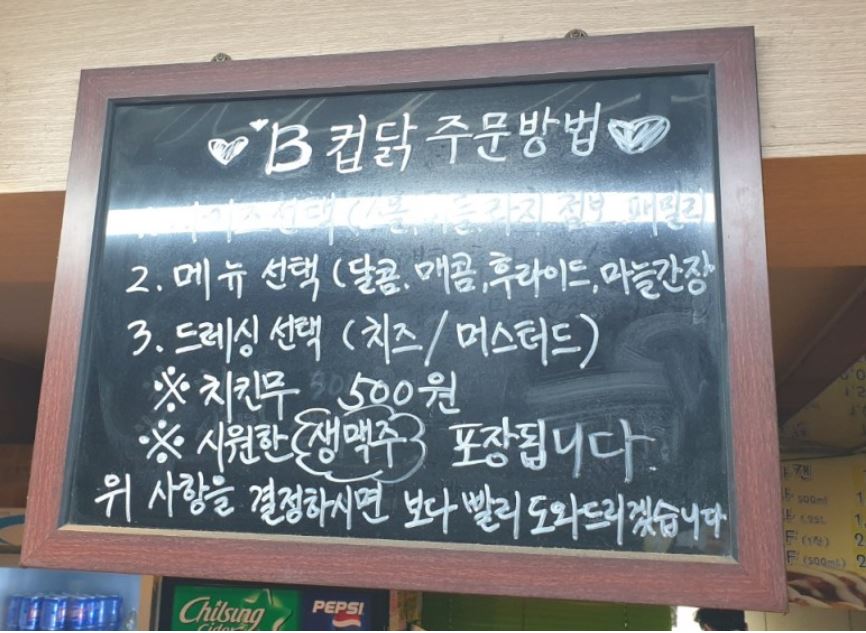 B 컵닭 주문방법
1. 사이즈 선택 (스몰, 미듐, 라지 점보 패밀리
2. 메뉴 선택 (달콤, 매콤, 후라이드, 마늘간장
3. 드레싱 선택 (치즈/머스터드)
※ 치킨무 500원
※ 시원한 생맥주 포장됩니다
위 사항을 결정하시면 보다 빨리 도와드리겠습니다
Chilsung
Cider
PEPSI
500ml
1.25L
(500ml)